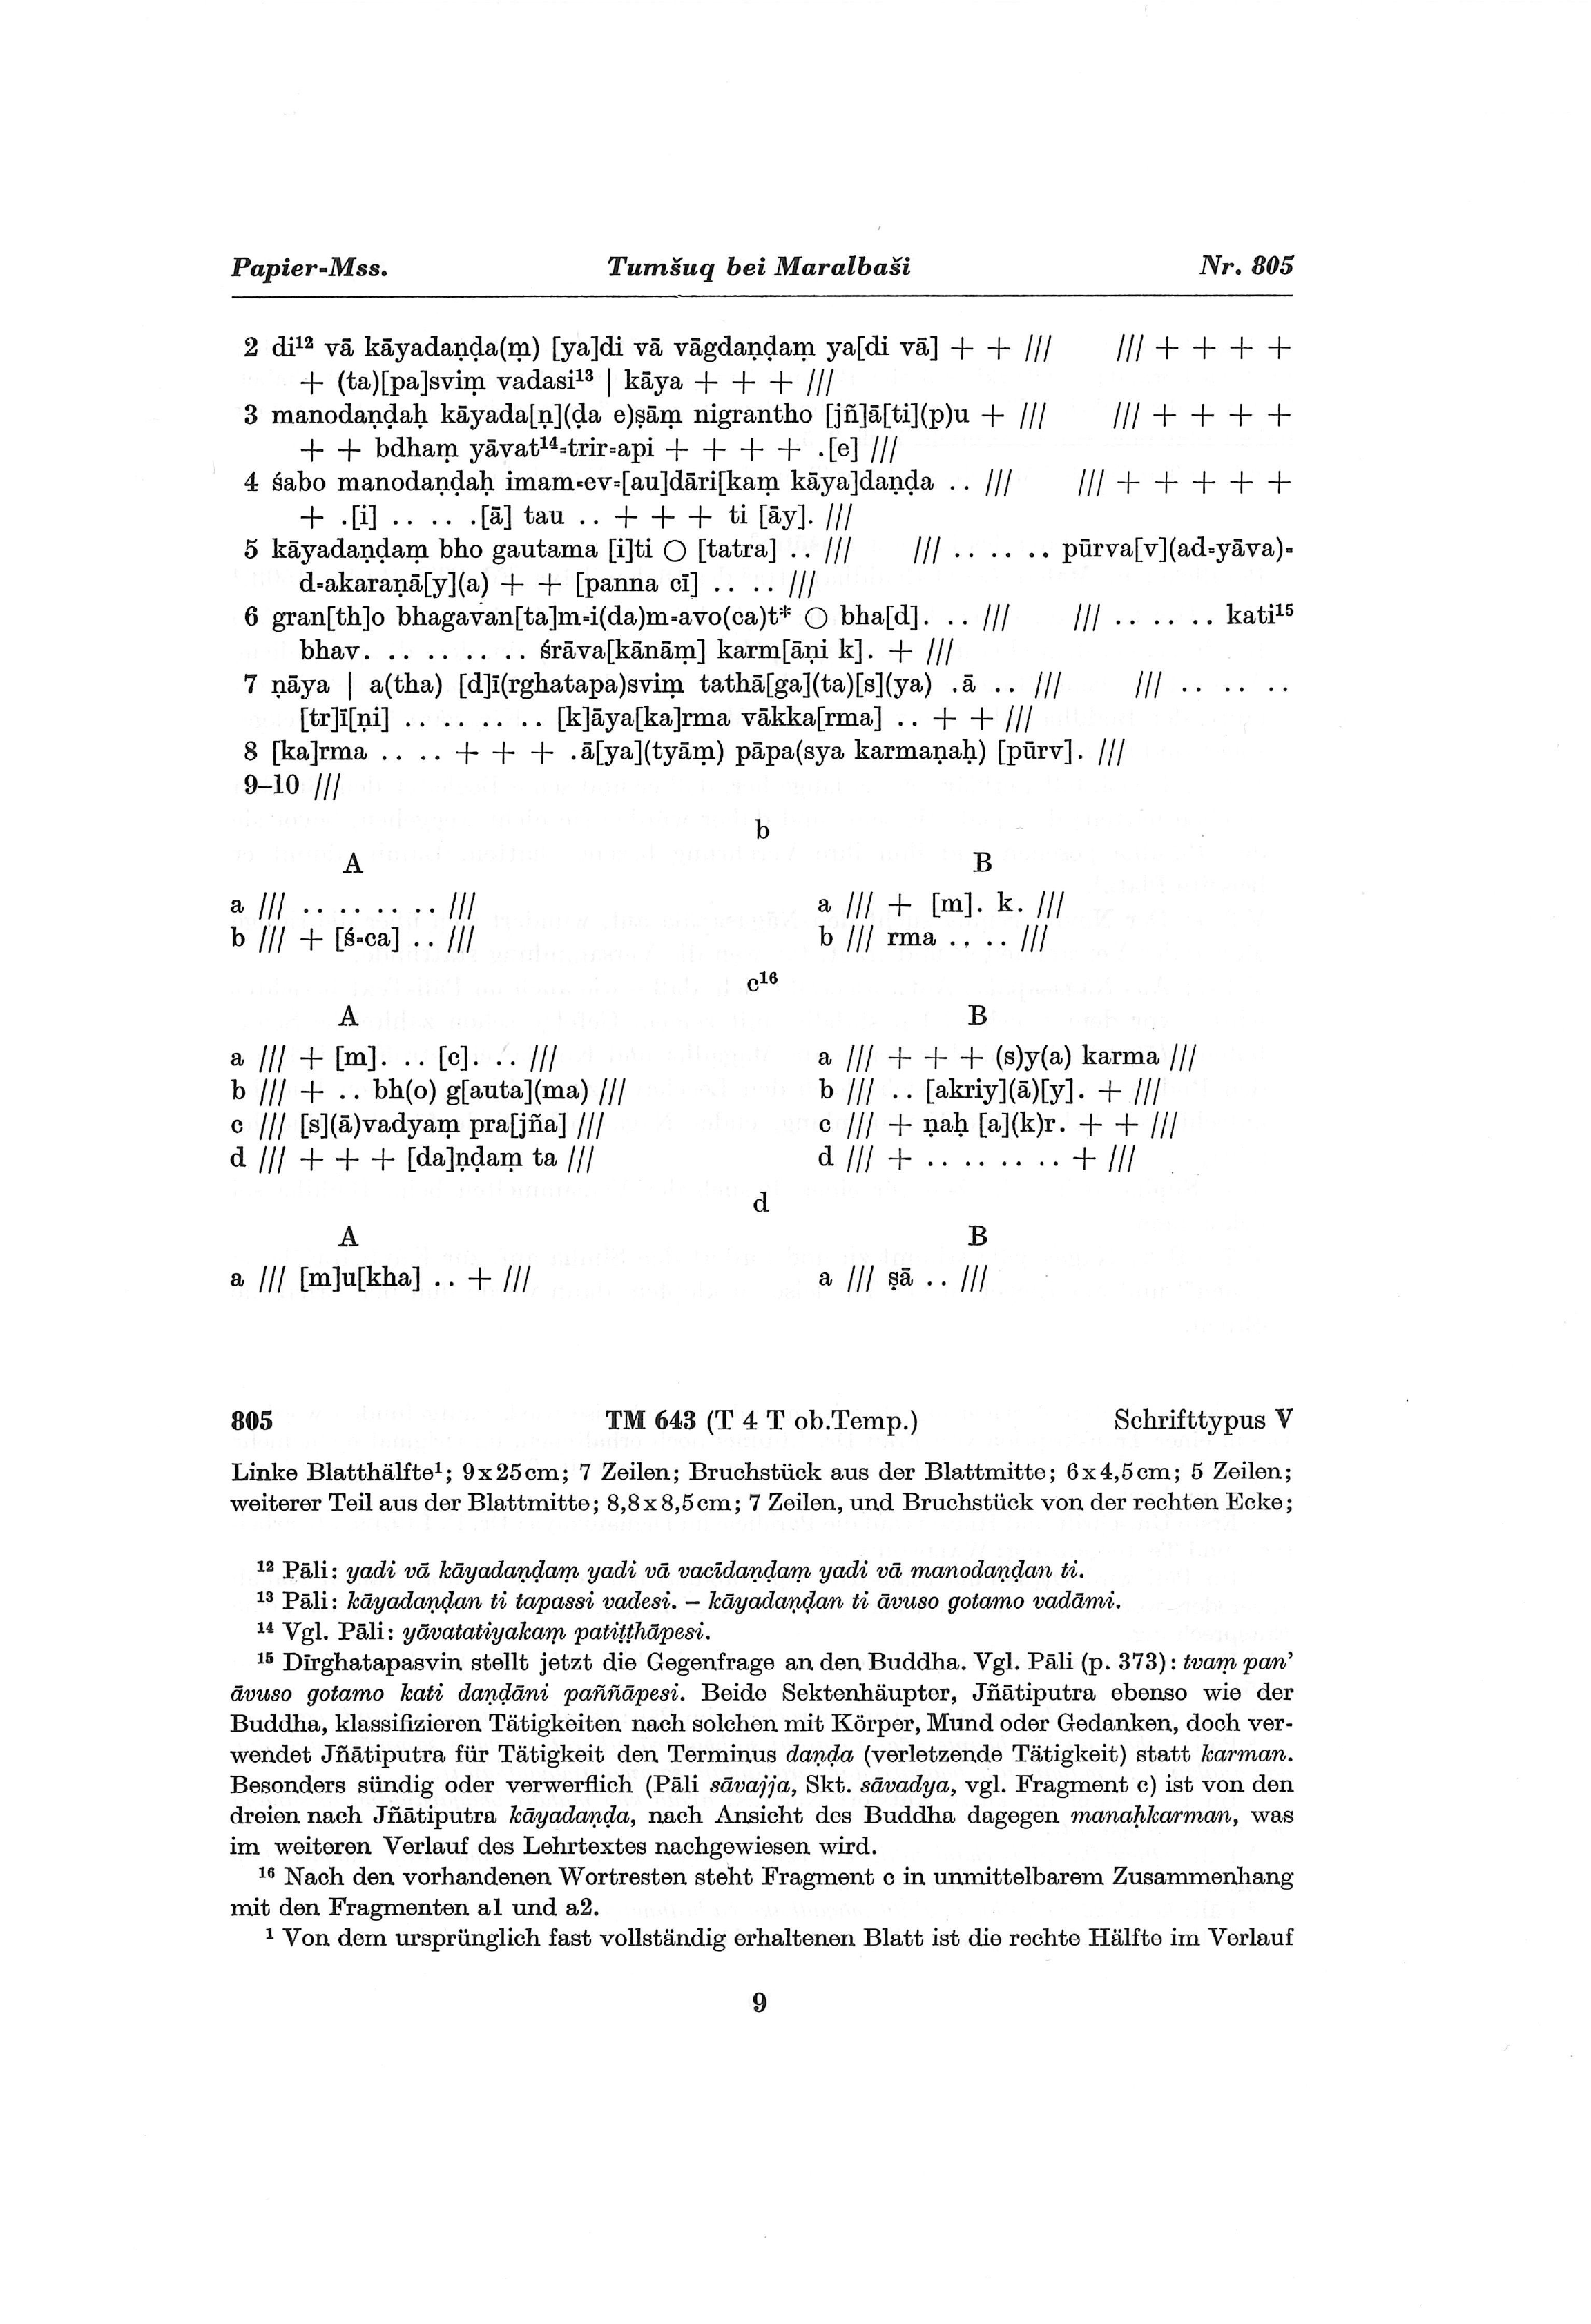 Papier-Mss. Tumšuq bei Maralbaši Nr. 805
2 di¹² vā kāyadaṇḍa(ṃ) [ya]di vā vāgdaṇḍaṃ ya[di vā] + + /// /// + + + +
+ (ta)[pa]sviṃ vadasi¹³ | kāya + + + ///
3 manodaṇḍaḥ kāyada[ṇ](ḍa e)ṣāṃ nigrantho [jñ]ā[ti](p)u + /// /// + + + +
+ + bdhaṃ yāvat¹⁴=trir=api + + + + .[e] ///
4 śabo manodaṇḍaḥ imam=ev=[au]dāri[kaṃ kāya]daṇḍa .. /// /// + + + + +
+ .[i] .. .. .[ā] tau .. + + + ti [āy]. ///
5 kāyadaṇḍaṃ bho gautama [i]ti ○ [tatra] .. /// /// .. .. .. pūrva[v](ad=yāva)=
d=akaraṇā[y](a) + + [panna cī] .. .. ///
6 gran[th]o bhagavan[ta]m=i(da)m=avo(ca)t* ○ bha[d]. .. /// /// .. .. .. kati¹⁵
bhav. .. .. .. .. śrāva[kānāṃ] karm[āṇi k]. + ///
7 ṇāya | a(tha) [d]ī(rghatapa)sviṃ tathā[ga](ta)[s](ya) .ā .. /// /// .. .. ..
[tr]ī[ṇi] .. .. .. .. [k]āya[ka]rma vākka[rma] .. + + ///
8 [ka]rma .. .. + + + .ā[ya](tyāṃ) pāpa(sya karmaṇaḥ) [pūrv]. ///
9–10 ///
b
A B
a /// .. .. .. .. /// a /// + [m]. k. ///
b /// + [ś=ca] .. /// b /// rma .. .. ///
c¹⁶
A B
a /// + [m]. .. [c]. .. /// a /// + + + (s)y(a) karma ///
b /// + .. bh(o) g[auta](ma) /// b /// .. [akriy](ā)[y]. + ///
c /// [s](ā)vadyaṃ pra[jña] /// c /// + ṇaḥ [a](k)r. + + ///
d /// + + + [da]ṇḍaṃ ta /// d /// + .. .. .. .. + ///
d
A B
a /// [m]u[kha] .. + /// a /// ṣā .. ///
805 TM 643 (T 4 T ob.Temp.) Schrifttypus V
Linke Blatthälfte¹; 9x25cm; 7 Zeilen; Bruchstück aus der Blattmitte; 6x4,5cm; 5 Zeilen;
weiterer Teil aus der Blattmitte; 8,8x8,5cm; 7 Zeilen, und Bruchstück von der rechten Ecke;
¹² Pāli: yadi vā kāyadaṇḍaṃ yadi vā vacīdaṇḍaṃ yadi vā manodaṇḍan ti.
¹³ Pāli: kāyadaṇḍan ti tapassi vadesi. – kāyadaṇḍan ti āvuso gotamo vadāmi.
¹⁴ Vgl. Pāli: yāvatatiyakaṃ patiṭṭhāpesi.
¹⁵ Dīrghatapasvin stellt jetzt die Gegenfrage an den Buddha. Vgl. Pāli (p. 373): tvaṃ pan’
āvuso gotamo kati daṇḍāni paññāpesi. Beide Sektenhäupter, Jñātiputra ebenso wie der
Buddha, klassifizieren Tätigkeiten nach solchen mit Körper, Mund oder Gedanken, doch ver-
wendet Jñātiputra für Tätigkeit den Terminus daṇḍa (verletzende Tätigkeit) statt karman.
Besonders sündig oder verwerflich (Pāli sāvajja, Skt. sāvadya, vgl. Fragment c) ist von den
dreien nach Jñātiputra kāyadaṇḍa, nach Ansicht des Buddha dagegen manaḥkarman, was
im weiteren Verlauf des Lehrtextes nachgewiesen wird.
¹⁶ Nach den vorhandenen Wortresten steht Fragment c in unmittelbarem Zusammenhang
mit den Fragmenten a1 und a2.
¹ Von dem ursprünglich fast vollständig erhaltenen Blatt ist die rechte Hälfte im Verlauf
9